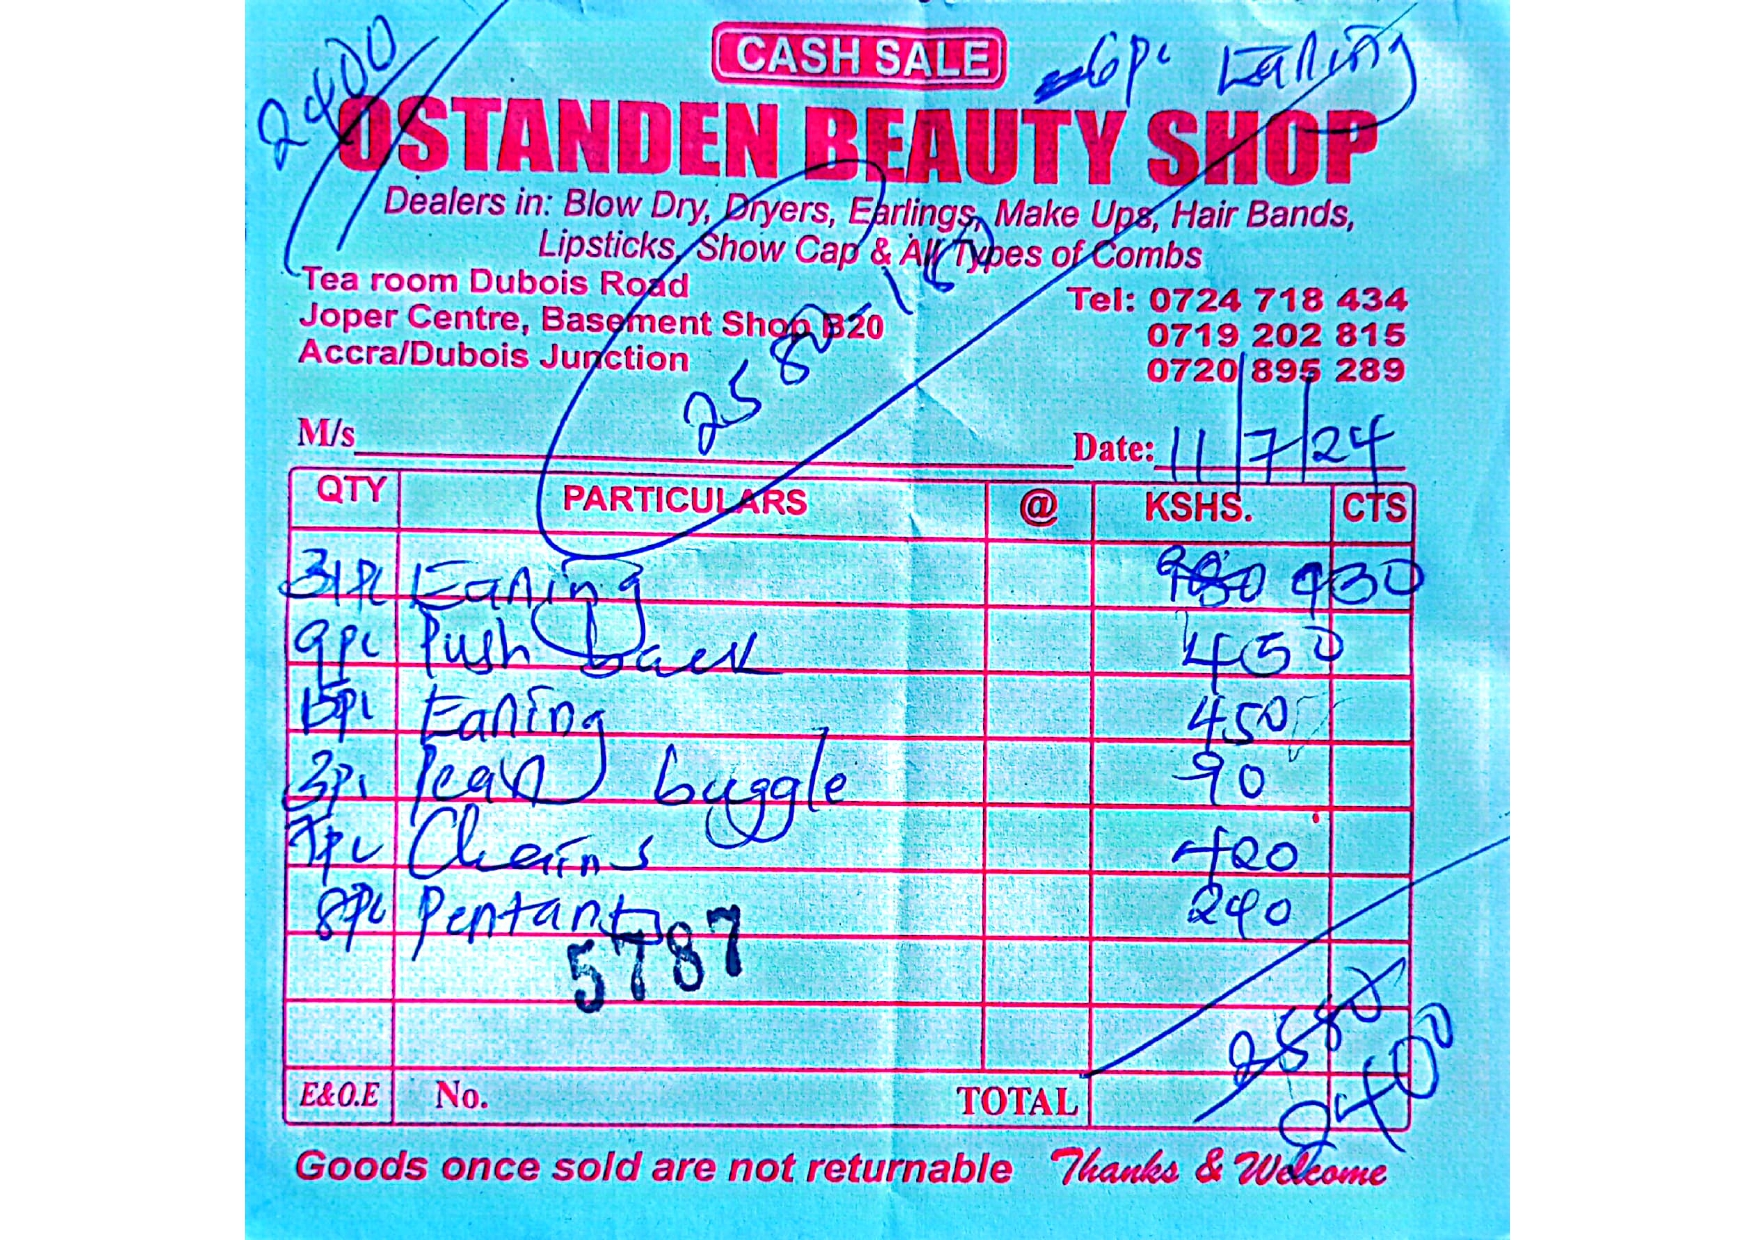 CASH SALE
6pc Earing
2400
OSTANDEN BEAUTY SHOP
Dealers in: Blow Dry, Dryers, Earlings, Make Ups, Hair Bands,
Lipsticks, Show Cap & All Types of Combs
Tea room Dubois Road
Joper Centre, Basement Shop B20
Accra/Dubois Junction
Tel: 0724 718 434
0719 202 815
0720 895 289
2580-180
M/s
Date: 11/7/24
QTY PARTICULARS @ KSHS. CTS
31pc Earing 930
9pc Push back 450
15pc Earing 450
3pc Pearl buggle 90
7pc Chains 420
8pc Pentant 240
5787
2580
2400
E&O.E No. TOTAL
Goods once sold are not returnable Thanks & Welcome